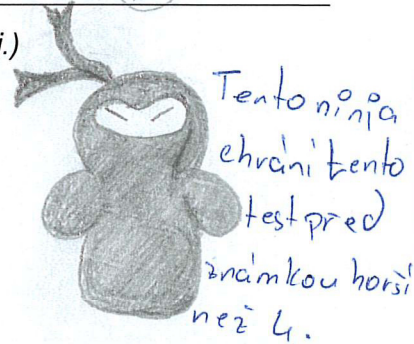 i.)
Tento ninja
chrání tento
test před
známkou horší
než 4.